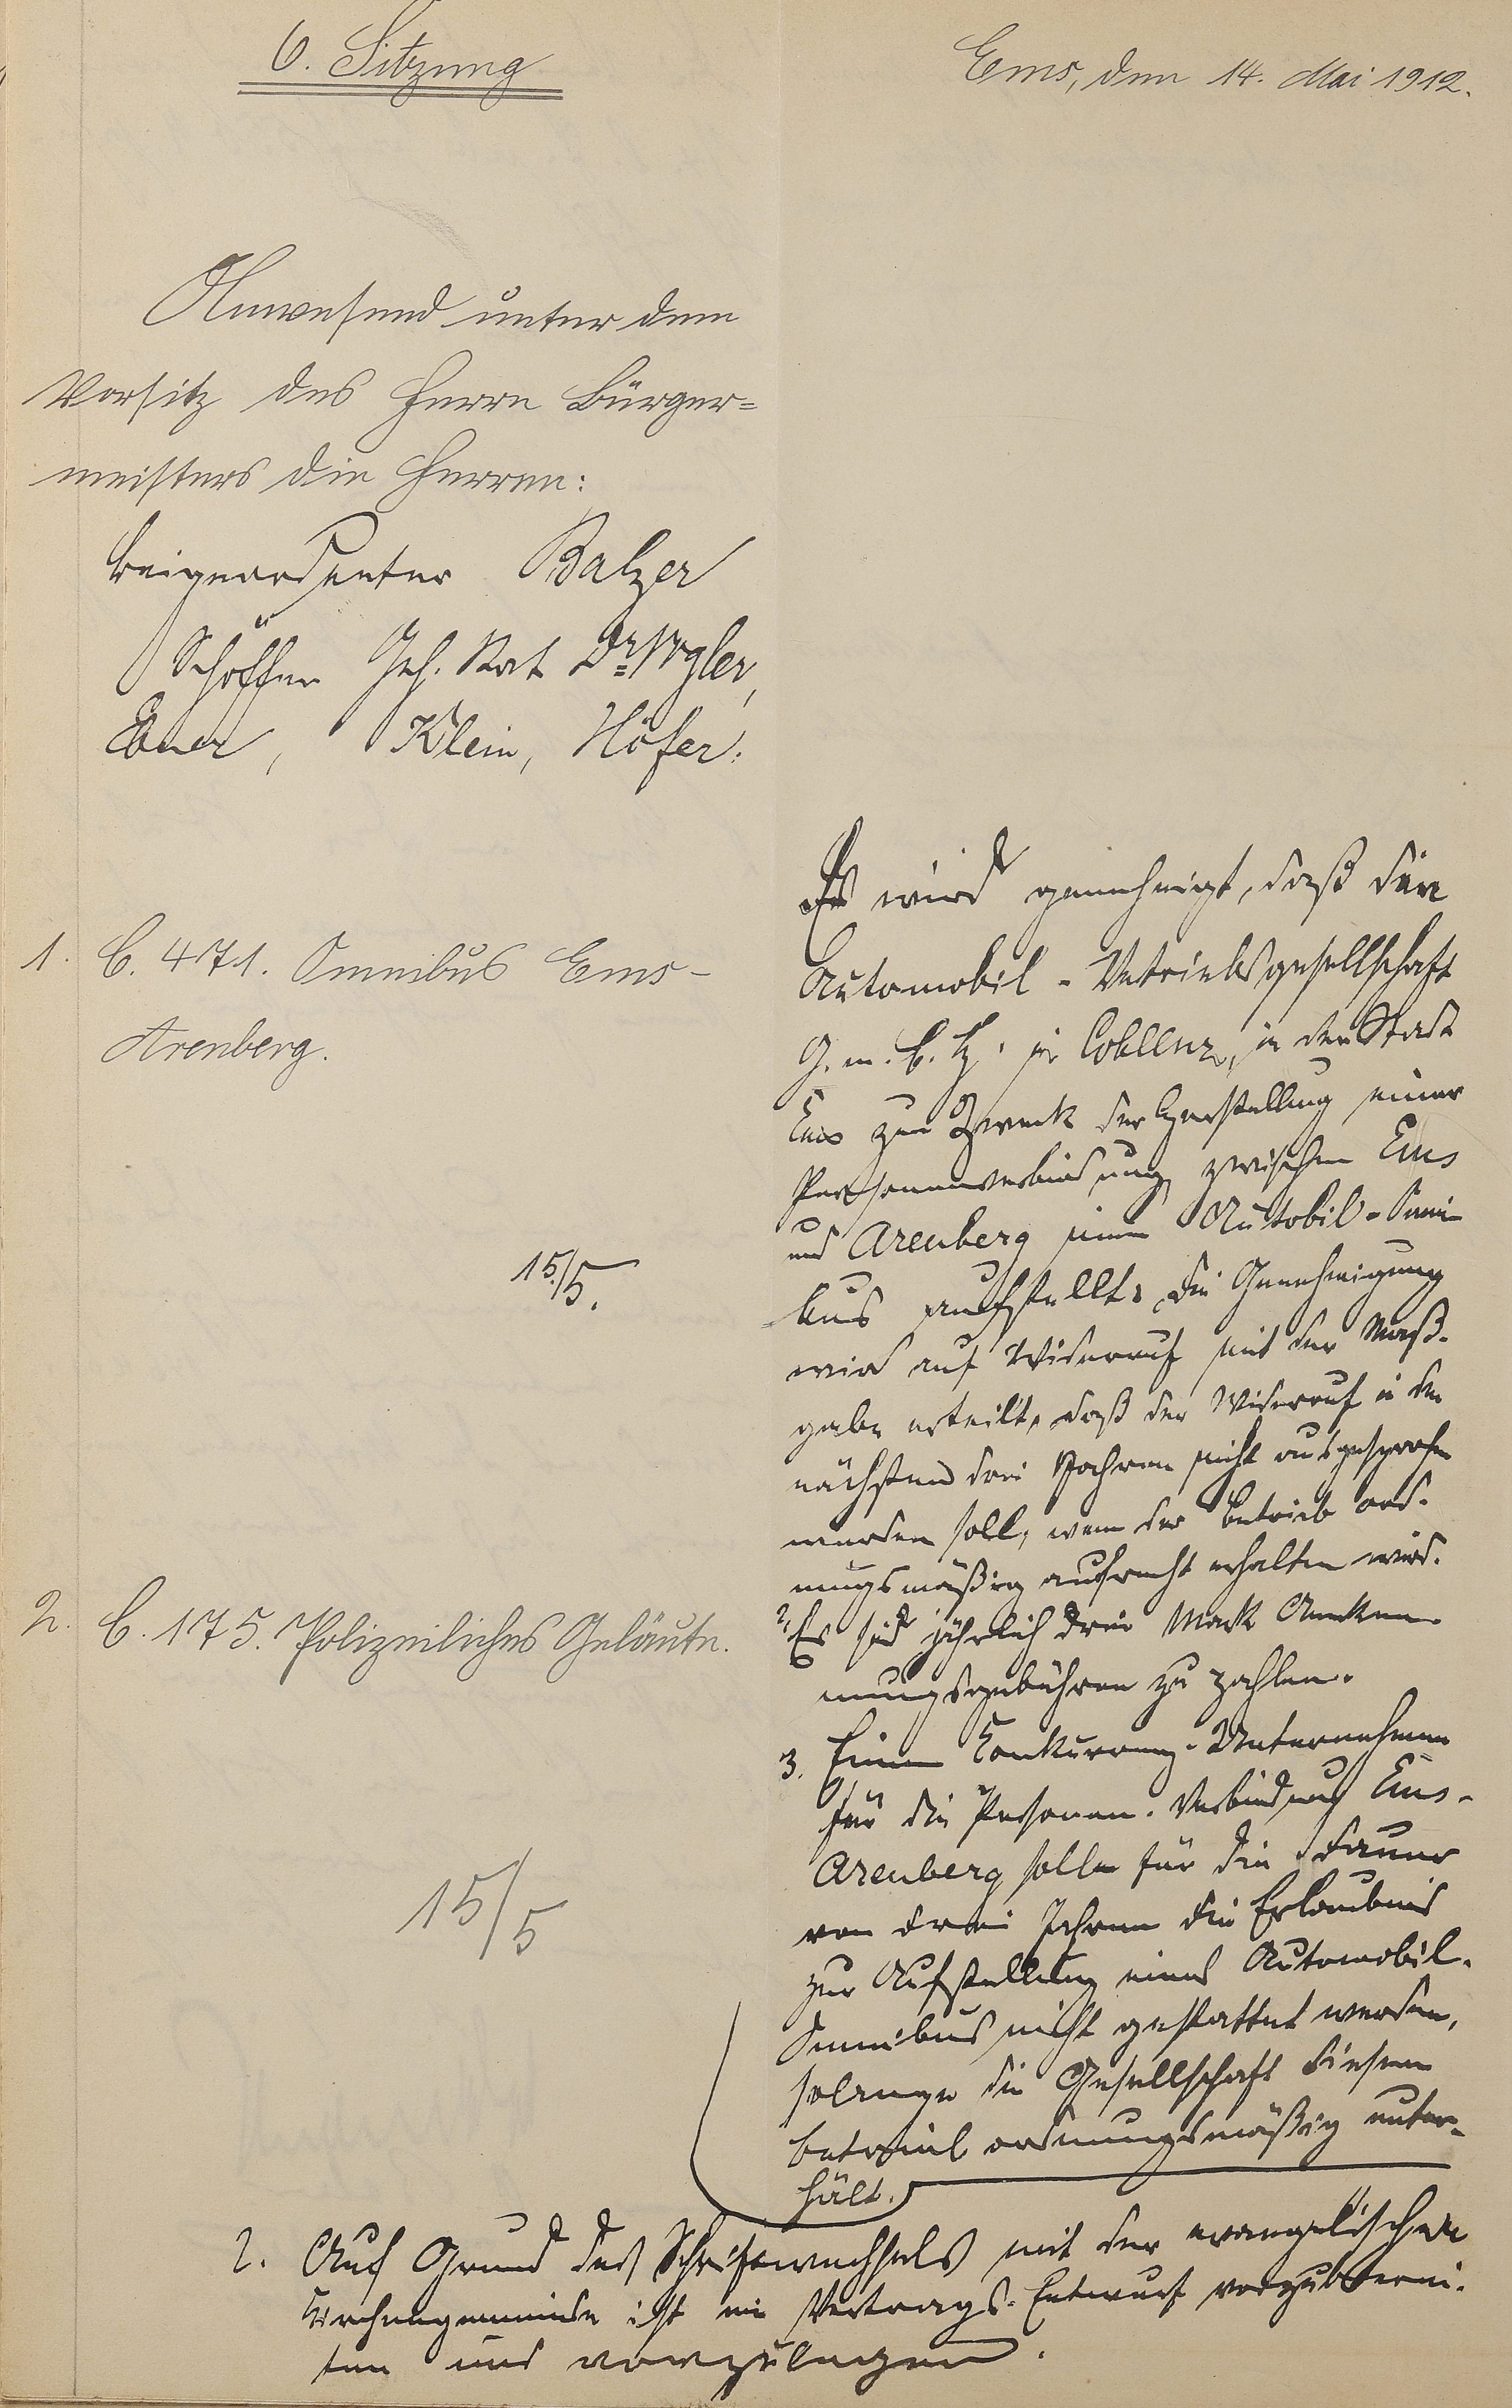 6. Sitzung
Ems, den 14. Mai 1912.
Anwesend unter dem
Vorsitz des Herrn Bürger=
meisters die Herren:
Beigeordneter Balzer
Schöffen Geh. Rat Dr. Vogler,
Ebner, Klein, Höfer.
1. C. 471. Omnibus Ems-
Arenberg.
15./5.
Es wird genehmigt, daß die
Automobil-Betriebsgesellschaft
G. m. b. H. in Coblenz, in der Stadt
Ems zum Zweck der Herstellung einer
Personenverbindung zwischen Ems
und Arenberg einen Autobil-Omni-
bus aufstellt. Die Genehmigung
wird auf Widerruf mit der Maß-
gabe erteilt, daß der Widerruf in den
nächsten drei Jahren nicht ausgesprochen
werden soll, wenn der Betrieb ord-
nungsmäßig aufrecht erhalten wird.
2. Es sind jährlich drei Mark Anerken-
nungsgebühren zu zahlen.
3. Einem Konkurrenz-Unternehmen
für die Personen-Verbindung Ems-
Arenberg solle für die Dauer
von drei Jahren die Erlaubnis
zur Aufstellung eines Automobil-
Omnibus nicht gestattet werden,
solange die Gesellschaft diesen
Betrieb ordnungsmäßig unter-
hält.
2. C. 175. Polizeiliches Geläute.
15/5
2. Auf Grund des Schriftwechsels mit der evangelischen
Kirchengemeinde ist ein Vertrags-Entwurf vorzuberei-
ten und vorzulegen.